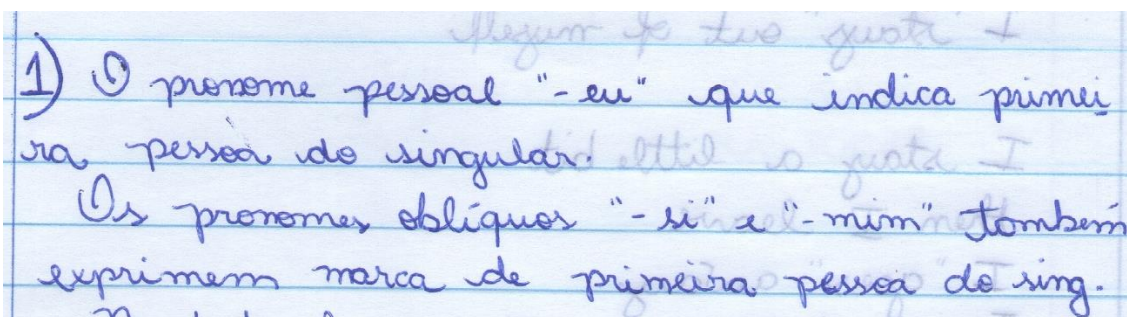 1) O pronome pessoal "-eu" que indica primei
ra pessoa do singular.
Os pronomes oblíquos "-si" e "-mim" também
exprimem marca de primeira pessoa do sing.